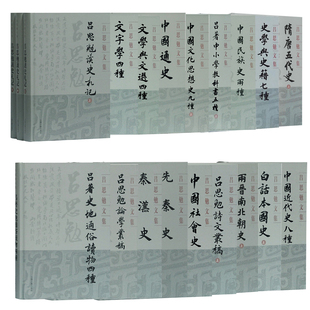 呂思勉讀史札記
文字學四種
文學與文選四種
中國通史
中國文化思想史九種
呂著中小學教科書五種
中國民族史兩種
史學與史籍七種
隋唐五代史
呂著史地通俗讀物四種
呂思勉論學叢稿
秦漢史
先秦史
中國社會史
呂思勉詩文叢稿
兩晉南北朝史
白話本國史
中國近代史八種